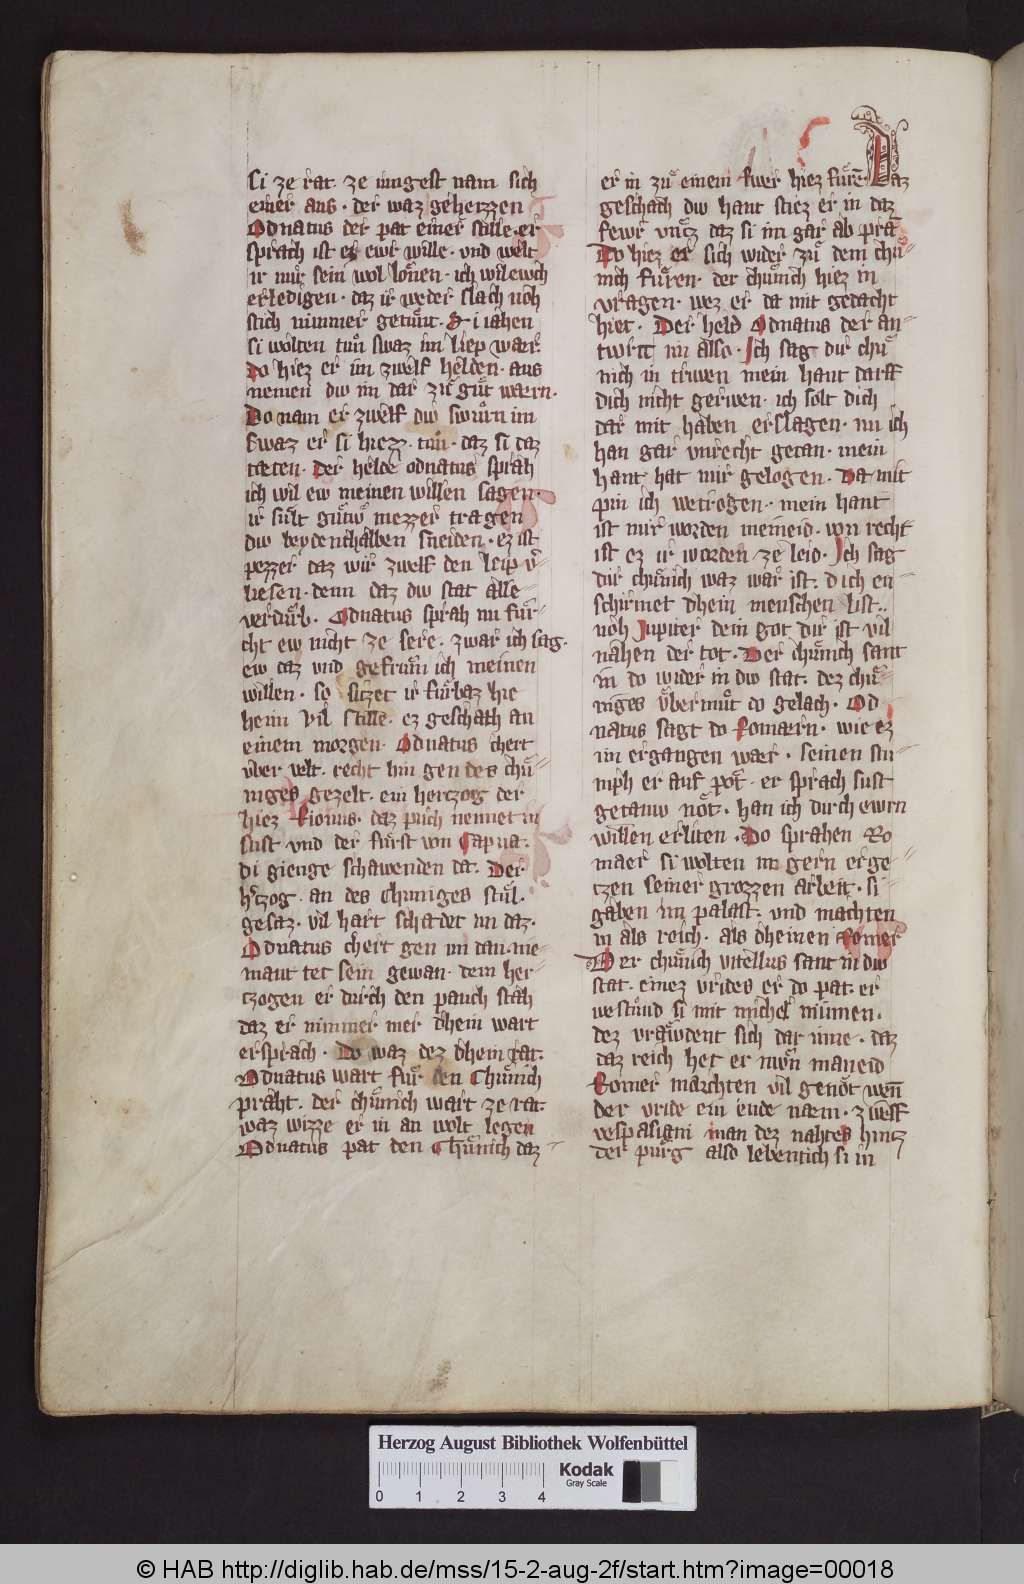 si ze rat. ze iungest nam sich
einer aus. der waz geherzzen
Odnatus der pat einer stille. er
sprach ist es ewr wille. und welt
ir mir sein wol lonen. ich wil ewch
erledigen. daz ir weder slach noch
stich nimmer getuͦt. Si iahen
si wolten tuͦn swaz im liep waer.
Do hiez er im zwelf helden. aus
nemen diw im dar zuͦ guͦt waern.
Do nam er zwelf diw swuͦrn im
swaz er si hiezz. tuͦn. daz si daz
taeten. Der helde odnatus sprah
ich wil ew meinen willen sagen.
ir sult guͦtiw mezzer tragen
diw beydenthalben sneiden. ez ist
pezzer daz wir zwelf den leip v̾-
liesen. denn daz diw stat alle
verduͤrb. Odnatus sprah nu fuͤr-
cht ew nicht ze sere. zwar ich sag.
ew daz und gefrum ich meinen
willen. so sitzet ir fuͤrbaz hie
heim vil stille. ez geschach an
einem morgen. Odnatus chert
uber velt. recht hin gen des chuͤ-
niges gezelt. ein hertzog der
hiez. daz puch nennet in
sust und der fuͤrst von Capua.
di gienge schawenden da. Der
h̾tzog. an des chuniges stuͦl.
gesaz. vil hart schadet im daz.
Odnatus chert gen im dan. nie-
mant tet sein gewan. dem her-
tzogen er durch den pauch stach
daz er nimmer mer dhein wart
ersprach. Do waz dez dhein rat.
Odnatus wart fuͤr den Chuͤnich
praht. der chuͤnich wart ze rat.
waz wizze er in an wolt legen
Odnatus pat den Chuͤnich daz
er in zuͦ einem fiwer hiez fuͤrn. Daz
geschach diw hant stiez er in daz
fewr untz daz si im gar ab pran
Do hiez er sich wider zuͦ dem chuͤ-
nich fuͤren. der chuͤnich hiez in
vragen. wez er da mit gedacht
hiet. Der held Odnatus der an-
twrtt im also. Ich sag dir chuͤ
nich in triwen mein hant darff
dich nicht geriwen. ich solt dich
dar mit haben erslagen. nu ich
han gar unrecht getan. mein
hant hat mir gelogen. Da mit
pin ich wetrogen. mein hant
ist mir worden meineid. von recht
ist ez ir worden ze leid. Ich sag
dir chuͤnich waz war ist. dich en-
schirmet dhein menschen list.
noh Jupiter dein got dir ist vil
nahen der tot. Der chuͤnich sant
in do wider in diw stat. dez chuͤ-
niges uͤbermuͦt do gelach. Od
natus sagt do Romaern. wie ez
im ergangen waer. seinen stu-
mph er auf pot. er sprach sust
getaniw not. han ich durch ewrn
willen erliten. Do sprahen Ro
maer si wolten im gern erge-
tzen seiner grozzen arbeit. si
gaben im palast. und machten
in als reich. als dheinen Romer
Der chuͤnich vitellus sant in diw
stat. einez vrides er do pat. er
westuͦnd si mit micheler minnen.
dez vraͤwdent sich dar inne. daz
daz reich het er nwn maneid
Romer machten vil genot wenn
der vride ein ende naem. zwelff
vespasiani man dez nahtes hintz
der purg also lebentich si in
Herzog August Bibliothek Wolfenbüttel
0 1 2 3 4
Kodak
Gray Scale
© HAB http://diglib.hab.de/mss/15-2-aug-2f/start.htm?image=00018